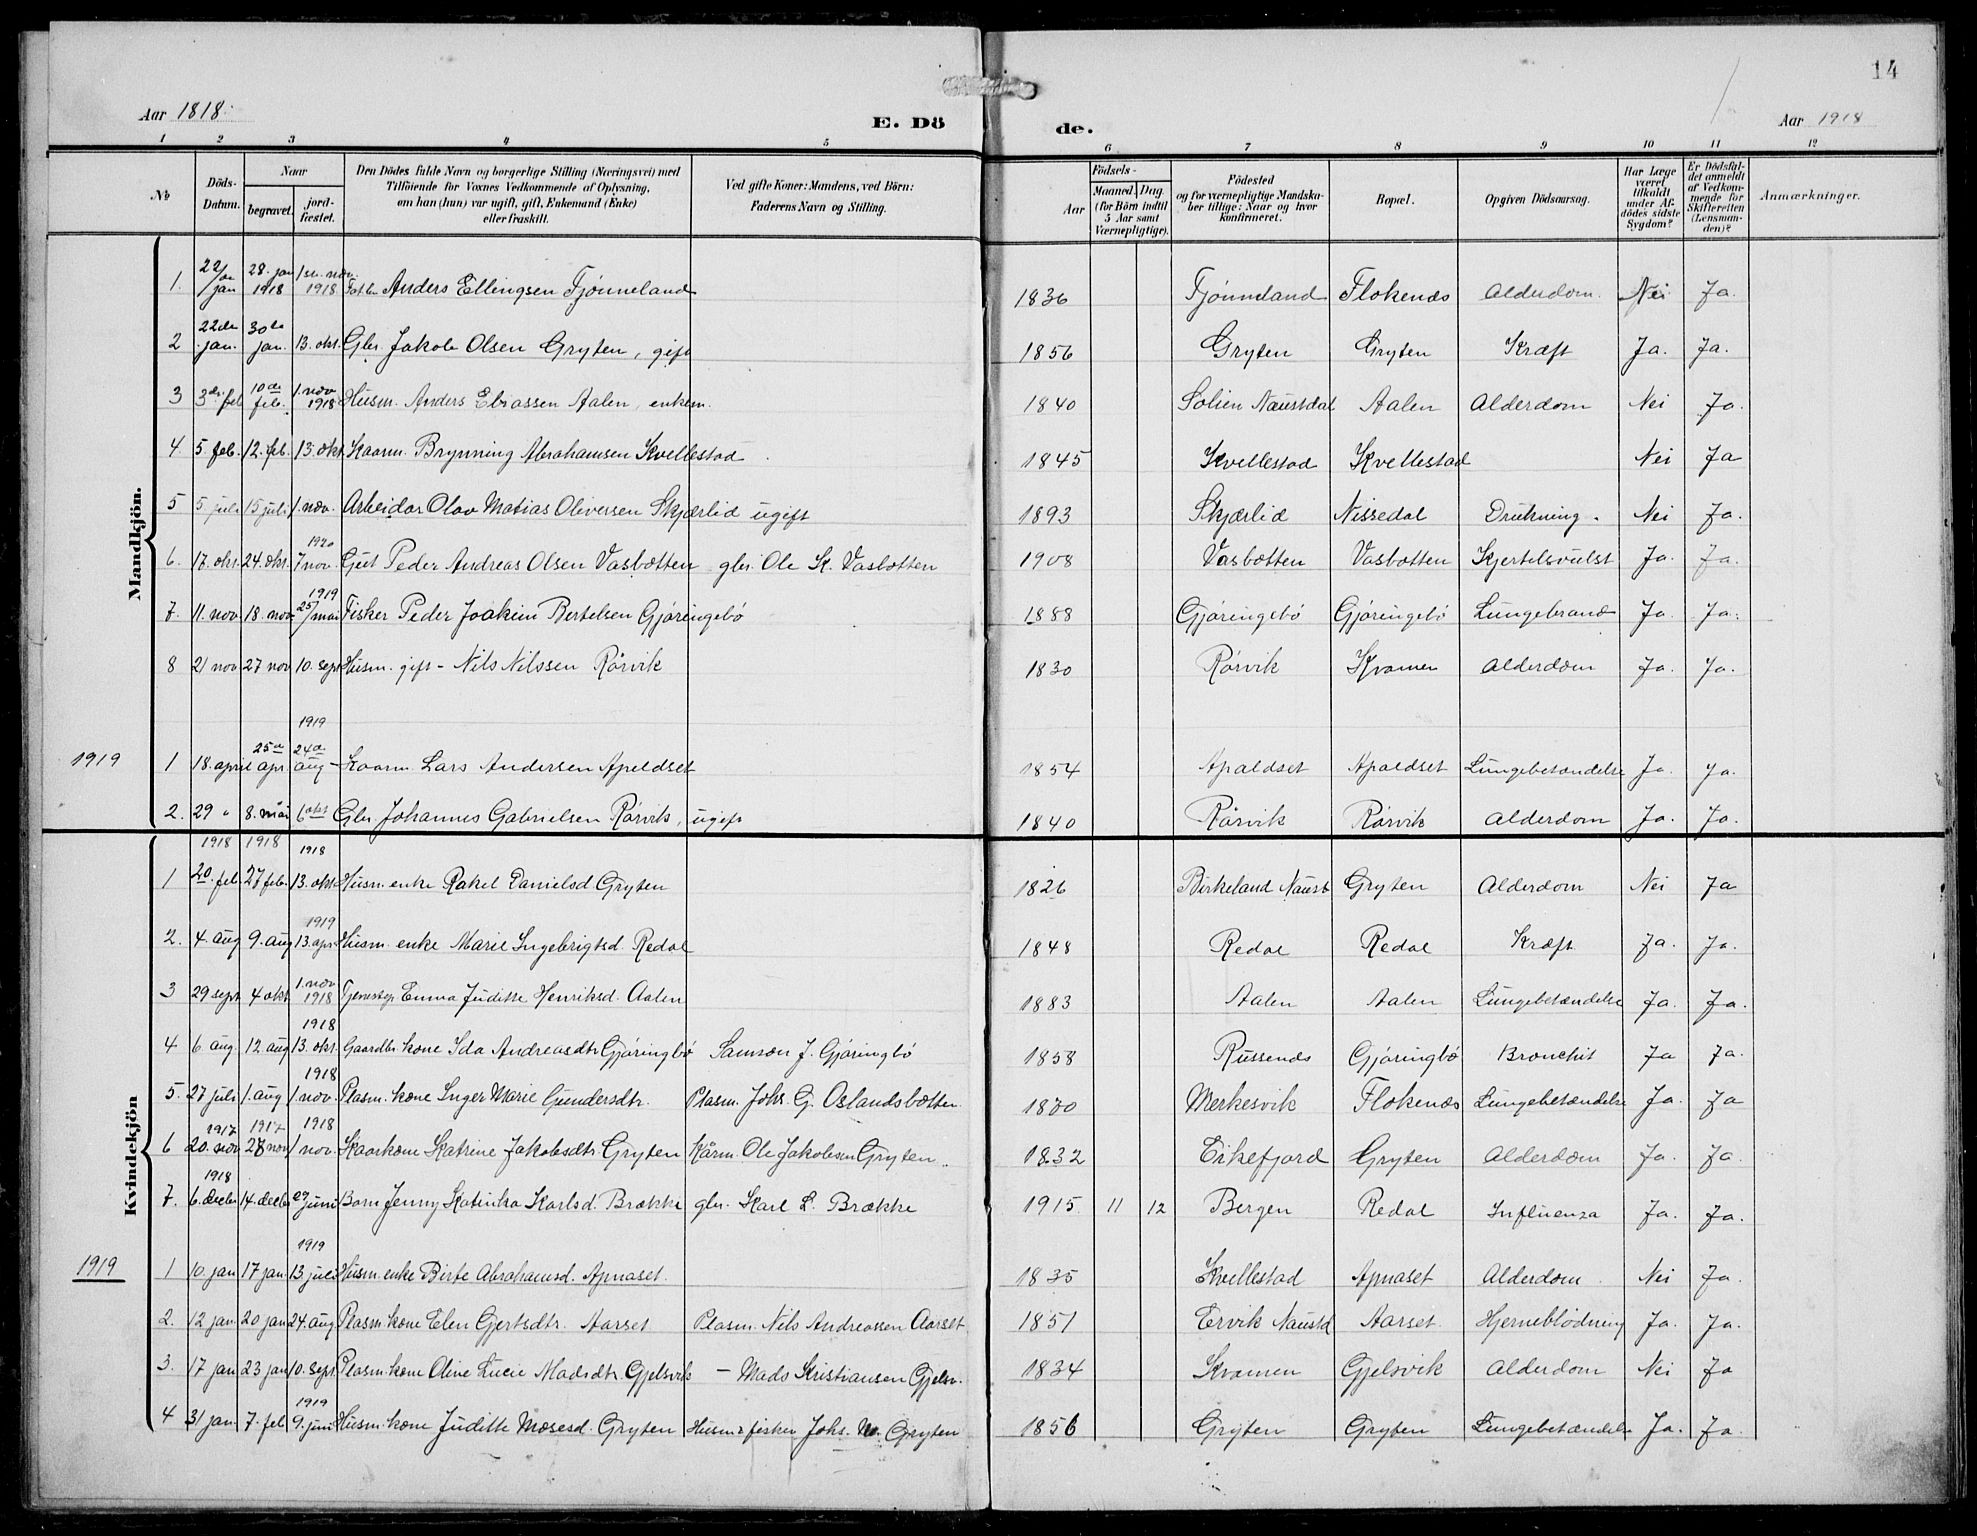 14
Aar 1818.
E. Döde.
Aar 1918
1 2 3 4 5 6 7 8 9 10 11 12
No
Döds-Datum.
Naar
begravet.
jordfæstet.
Den Dödes fulde Navn og borgerlige Stilling (Næringsvei) med Tilföiende for Voxnes Vedkommende af Oplysning, om han (hun) var ugift, gift, Enkemand (Enke) eller fraskilt.
Ved gifte Koner: Mandens, ved Börn: Faderens Navn og Stilling.
Födsels-
Aar
Maaned. Dag.
(for Börn indtil 5 Aar samt Værnepligtige).
Födested og for værnepligtige Mandskaber tillige: Naar og hvor konfirmeret.
Bopæl.
Opgiven Dödsaarsag.
Har Læge været tilkaldt under Afdödes sidste Sygdom?
Er Dödsfaldet anmeldt af Vedkommende for Skifteretten (Lensmanden)?
Anmærkninger.
Mandkjön.
1. 22/jan 28. jan 1918 1918 Anders Ellingsen Tjönneland 1836 Tjönneland Flokenes Alderdom. Nei Ja.
2 22de jan. 30te jan. 13. okt. Gbr. Jakob Olsen Gryten, gift 1856 Gryten Gryten Kræft Ja. Ja.
3 3die feb 10de feb. 1. nov 1918 Husm. Anders Eliassen Aalen, enkem. 1840 Solien Naustdal Aalen Alderdom Nei Ja.
4 5 feb. 12. feb. 13. okt Kaarm. Brynning Abrahamsen Kvellestad 1845 Kvellestad Kvellestad Nei Ja
5 5 juli 15 juli 1. nov. Arbeidar Olav Matias Oliversen Skjærlid ugift 1893 Skjærlid Nissedal Drukning. Nei Ja.
6. 17. okt. 24. okt. 1920 7 nov. Gut Peder Andreas Olsen Vasbotten gbr. Ole K. Vasbotten 1908 Vasbotten Vasbotten Kjertelsvulst Ja. Ja.
7. 11. nov. 18. nov 1919 25/mai Fisker Peder Joakim Bertelsen Gjöringebö 1888 Gjöringebö Gjöringebö Lungebrand Ja. Ja.
8 21 nov 27 nov 10. sept Husm. gift - Nils Nilssen Rörvik 1830 Rörvik Kvamen Alderdom Ja. Ja.
1919
1919 1 18. april 25de apr. 24de aug - Kaarm. Lars Andersen Apeldset 1854 Apaldset Apaldset Lungebetændelse Ja. Ja.
2. 29 " 8. mai 6 okt Gbr. Johannes Gabrielsen Rörvik, ugift 1840 Rörvik Rörvik Alderdom Ja. Ja.
Kvindekjön
1918 1918 1918
1 20. feb. 27 feb. 13. okt. Husm. enke Rakel Danielsd Gryten 1826 Birkeland Naust Gryten Alderdom Nei Ja
2. 4. aug 9. aug 1919 13. apr. Husm. enke Marie Ingebrigtsd. Redal 1848 Redal Redal Kræft Ja. Ja.
3 29 sept 4 okt 1. nov 1918 Emma Juditte Henriksd. Aalen 1883 Aalen Aalen Lungebetændelse Ja. Ja.
4 6 aug. 12 aug 1918 13. okt. Gaardbr. kone Ida Andreasdtr Gjöringbö Samson J. Gjöringbö 1858 Russenes Gjöringbö Bronchit Ja Ja.
5. 27 juli 1. aug 1918 1 nov. Plasm. kone Inger Marie Gundersdtr. Plasm. Johs. G. Oslandsbotten 1870 Merkesvik Flokenes Lungebetændelse Ja. Ja
6 1917 20. nov 1917 28 nov 1918 1 nov. Kaarkone Katrine Jakobsdtr. Gryten Kårm. Ole Jakobsen Gryten. 1832 Eikefjord Gryten Alderdom Ja. Ja.
7. 1918 6. decbr 14. decbr 29 juni Barn Jenny Katinka Karlsd. Brække gbr. Karl L. Brække 1915 11 12 Bergen Redal Influenza Ja. Ja.
1919
1919 1 10. jan 17 jan. 13. juli Husm. enke Birte Abrahamsd. Apnaset. 1835 Kvellestad Apnaset Alderdom. Nei Ja.
2. 12 jan. 20 jan 24. aug Plasm. kone Elen Gjertsdtr. Aarset Plasm. Nils Andreassen Aarset 1851 Ervik Naustd Aarset. Hjerneblödning Ja. Ja.
3. 17 jan 23 jan 10. sept. Plasm. kone Oline Lucie Madsdtr. Gjelsvik - Mads Kristiansen Gjelsv. 1834 Kvamen Gjelsvik Alderdom Nei Ja
4 31 jan. 7. feb 1919 9. juni Husm. kone Juditte Mosesd. Gryten Husm & fisker Johs. M. Gryten 1856 Gryten Gryten Lungebetændelse Ja. Ja.